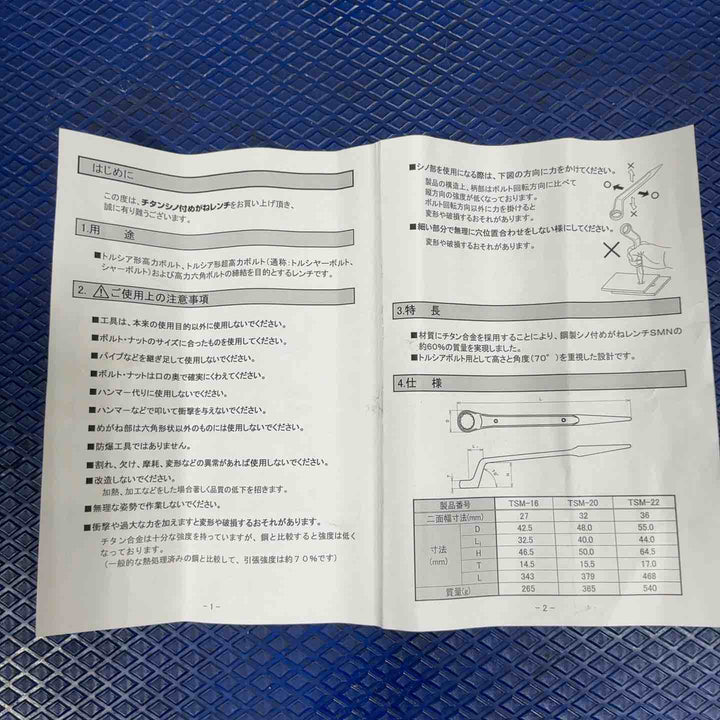 はじめに
この度は、チタンシノ付めがねレンチをお買い上げ頂き、
誠に有り難うございます。
1.用 途
■トルシア形高力ボルト、トルシア形超高力ボルト(通称:トルシヤーボルト、
シャーボルト)および高力六角ボルトの締結を目的とするレンチです。
2. ⚠ご使用上の注意事項
■工具は、本来の使用目的以外に使用しないでください。
■ボルト・ナットのサイズに合ったものを使用してください。
■パイプなどを継ぎ足して使用しないでください。
■ボルト・ナットは口の奥で確実にくわえてください。
■ハンマー代りに使用しないでください。
■ハンマーなどで叩いて衝撃を与えないでください。
■めがね部は六角形状以外のものには使用しないでください。
■防爆工具ではありません。
■割れ、欠け、摩耗、変形などの異常があれば使用しないでください。
■改造しないでください。
加熱、加工などをした場合著しく品質の低下を招きます。
■無理な姿勢で作業しないでください。
■衝撃や過大な力を加えますと変形や破損するおそれがあります。
チタン合金は十分な強度を持っていますが、鋼と比較すると強度は低く
なっております。
(一般的な熱処理済みの鋼と比較して、引張強度は約70%です)
-1-
■シノ部を使用になる際は、下図の方向に力をかけてください。
製品の構造上、柄部はボルト回転方向に比べて
縦方向の強度が低くなっております。
ボルト回転方向以外に力を掛けると
変形や破損するおそれがあります。
■細い部分で無理に穴位置合わせをしない様にしてください。
変形や破損するおそれがあります。
3.特 長
■材質にチタン合金を採用することにより、鋼製シノ付めがねレンチSMNの
約60%の質量を実現しました。
■トルシアボルト用として高さと角度(70°)を重視した設計です。
4.仕 様
L
D
L₁
H
T
製品番号 TSM-16 TSM-20 TSM-22
二面幅寸法(mm) 27 32 36
寸法(mm) D 42.5 48.0 55.0
L₁ 32.5 40.0 44.0
H 46.5 50.0 64.5
T 14.5 15.5 17.0
L 343 379 468
質量(g) 265 365 540
-2-